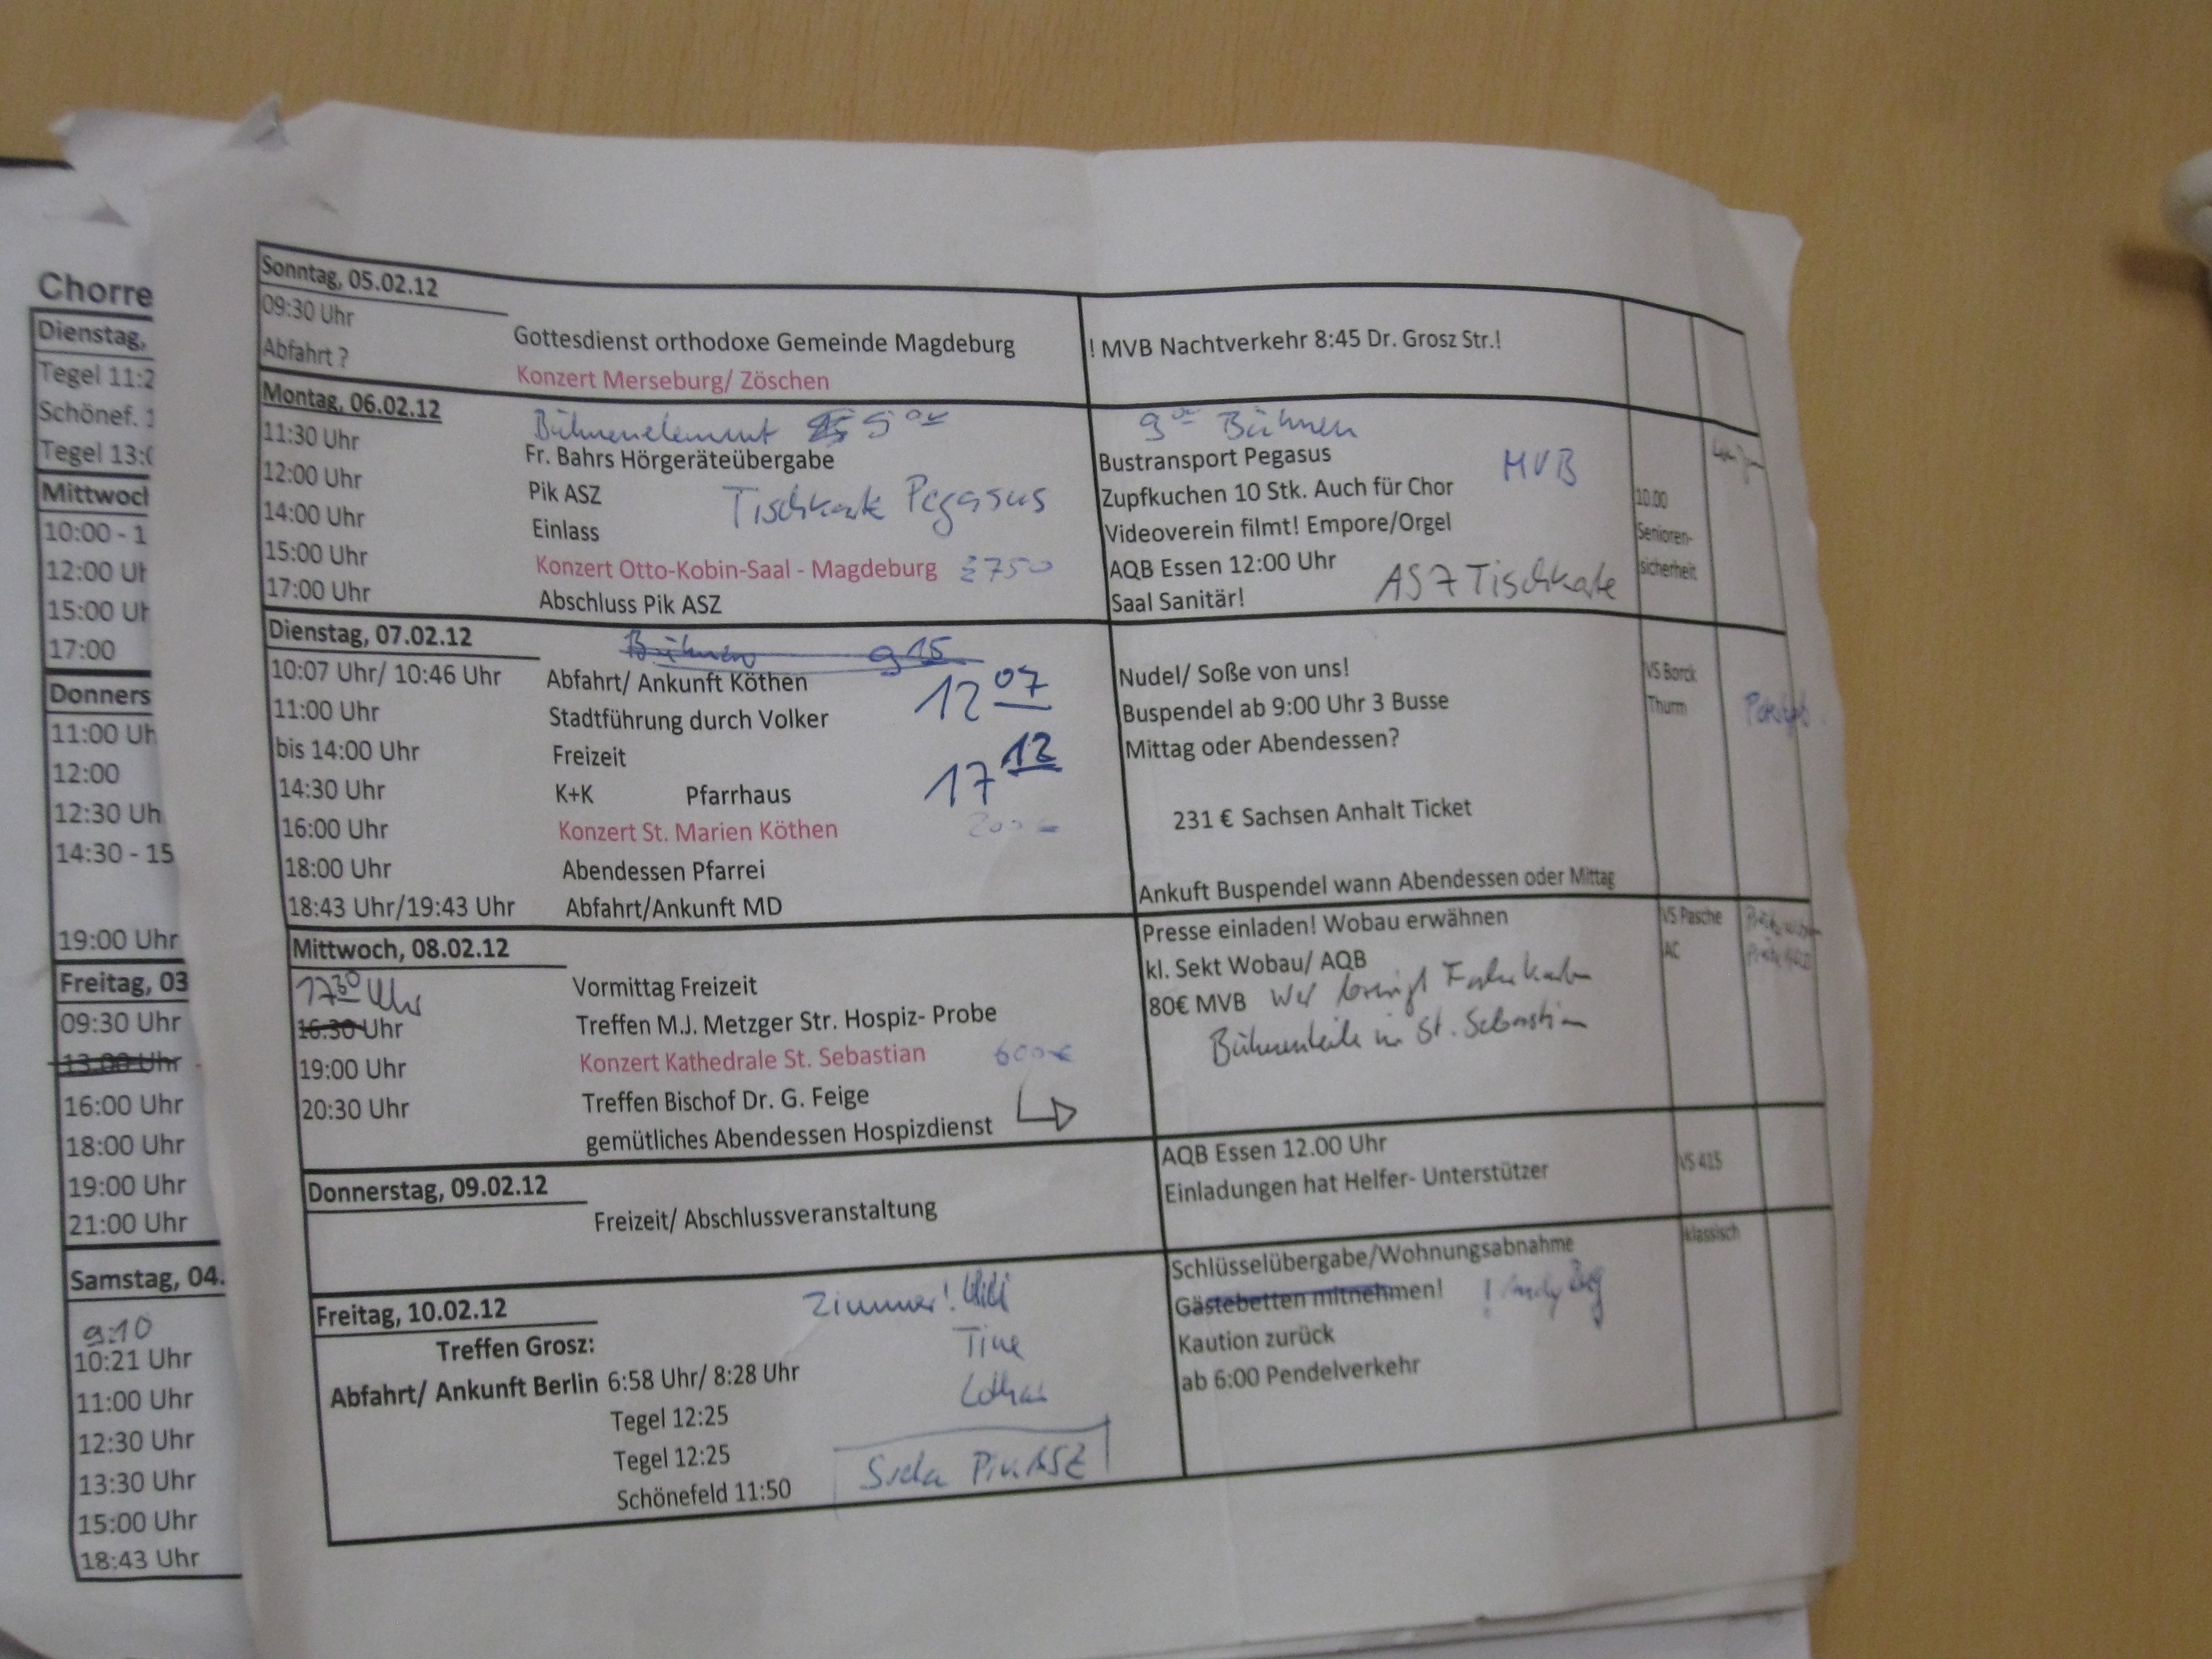 Chorre
Dienstag,
Tegel 11:2
Schönef. 1
Tegel 13:0
Mittwocl
10:00 - 1
12:00 Uh
15:00 Uh
17:00
Donners
11:00 Uh
12:00
12:30 Uh
14:30 - 15
19:00 Uhr
Freitag, 03
09:30 Uhr
13:00 Uhr
16:00 Uhr
18:00 Uhr
19:00 Uhr
21:00 Uhr
Samstag, 04.
9:10
10:21 Uhr
11:00 Uhr
12:30 Uhr
13:30 Uhr
15:00 Uhr
18:43 Uhr
Sonntag, 05.02.12
09:30 Uhr Gottesdienst orthodoxe Gemeinde Magdeburg ! MVB Nachtverkehr 8:45 Dr. Grosz Str.!
Abfahrt ? Konzert Merseburg/ Zöschen
Montag, 06.02.12 Bühnenelement 9 00 9 00 Bühnen
11:30 Uhr Fr. Bahrs Hörgeräteübergabe Bustransport Pegasus MVB
12:00 Uhr Pik ASZ Tischkarte Pegasus Zupfkuchen 10 Stk. Auch für Chor 10.00
14:00 Uhr Einlass Videoverein filmt! Empore/Orgel Senioren-
15:00 Uhr Konzert Otto-Kobin-Saal - Magdeburg AQB Essen 12:00 Uhr sicherheit
17:00 Uhr Abschluss Pik ASZ Saal Sanitär! ASZ Tischkarte
Dienstag, 07.02.12 Bühnen 9 15
10:07 Uhr/ 10:46 Uhr Abfahrt/ Ankunft Köthen 12 07 Nudel/ Soße von uns! VS Borck
11:00 Uhr Stadtführung durch Volker Buspendel ab 9:00 Uhr 3 Busse Thurm
bis 14:00 Uhr Freizeit 17 12 Mittag oder Abendessen?
14:30 Uhr K+K Pfarrhaus
16:00 Uhr Konzert St. Marien Köthen 200 € 231 € Sachsen Anhalt Ticket
18:00 Uhr Abendessen Pfarrei
18:43 Uhr/19:43 Uhr Abfahrt/Ankunft MD Ankuft Buspendel wann Abendessen oder Mittag
Mittwoch, 08.02.12 Presse einladen! Wobau erwähnen VS Pasche
17 30 Uhr Vormittag Freizeit kl. Sekt Wobau/ AQB AC
16:30 Uhr Treffen M.J. Metzger Str. Hospiz- Probe 80€ MVB Wer besorgt Fahrkarten
19:00 Uhr Konzert Kathedrale St. Sebastian 600 € Bühnenteile in St. Sebastian
20:30 Uhr Treffen Bischof Dr. G. Feige
gemütliches Abendessen Hospizdienst
Donnerstag, 09.02.12 AQB Essen 12.00 Uhr VS 415
Freizeit/ Abschlussveranstaltung Einladungen hat Helfer- Unterstützer
Freitag, 10.02.12 Zimmer! Schlüsselübergabe/Wohnungsabnahme klassisch
Treffen Grosz: Tine Gästebetten mitnehmen!
Abfahrt/ Ankunft Berlin 6:58 Uhr/ 8:28 Uhr Lothar Kaution zurück
Tegel 12:25 ab 6:00 Pendelverkehr
Tegel 12:25
Schönefeld 11:50 Pik ASZ